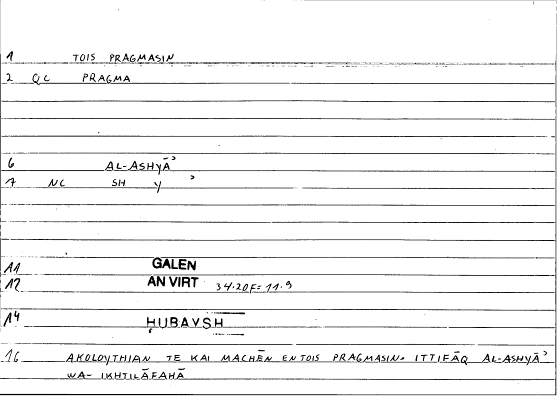 1 TOIS PRAGMASIN
2 QC PRAGMA
6 AL-ASHYĀʾ
7 NC SH Y ʾ
11 GALEN
12 AN VIRT 34.20F=11.9
14 ḤUBAYSH
16 AKOLOYTHIAN TE KAI MACHĒN EN TOIS PRAGMASIN. ITTIFĀQ AL-ASHYĀʾ
WA- IKHTILĀFAHĀ